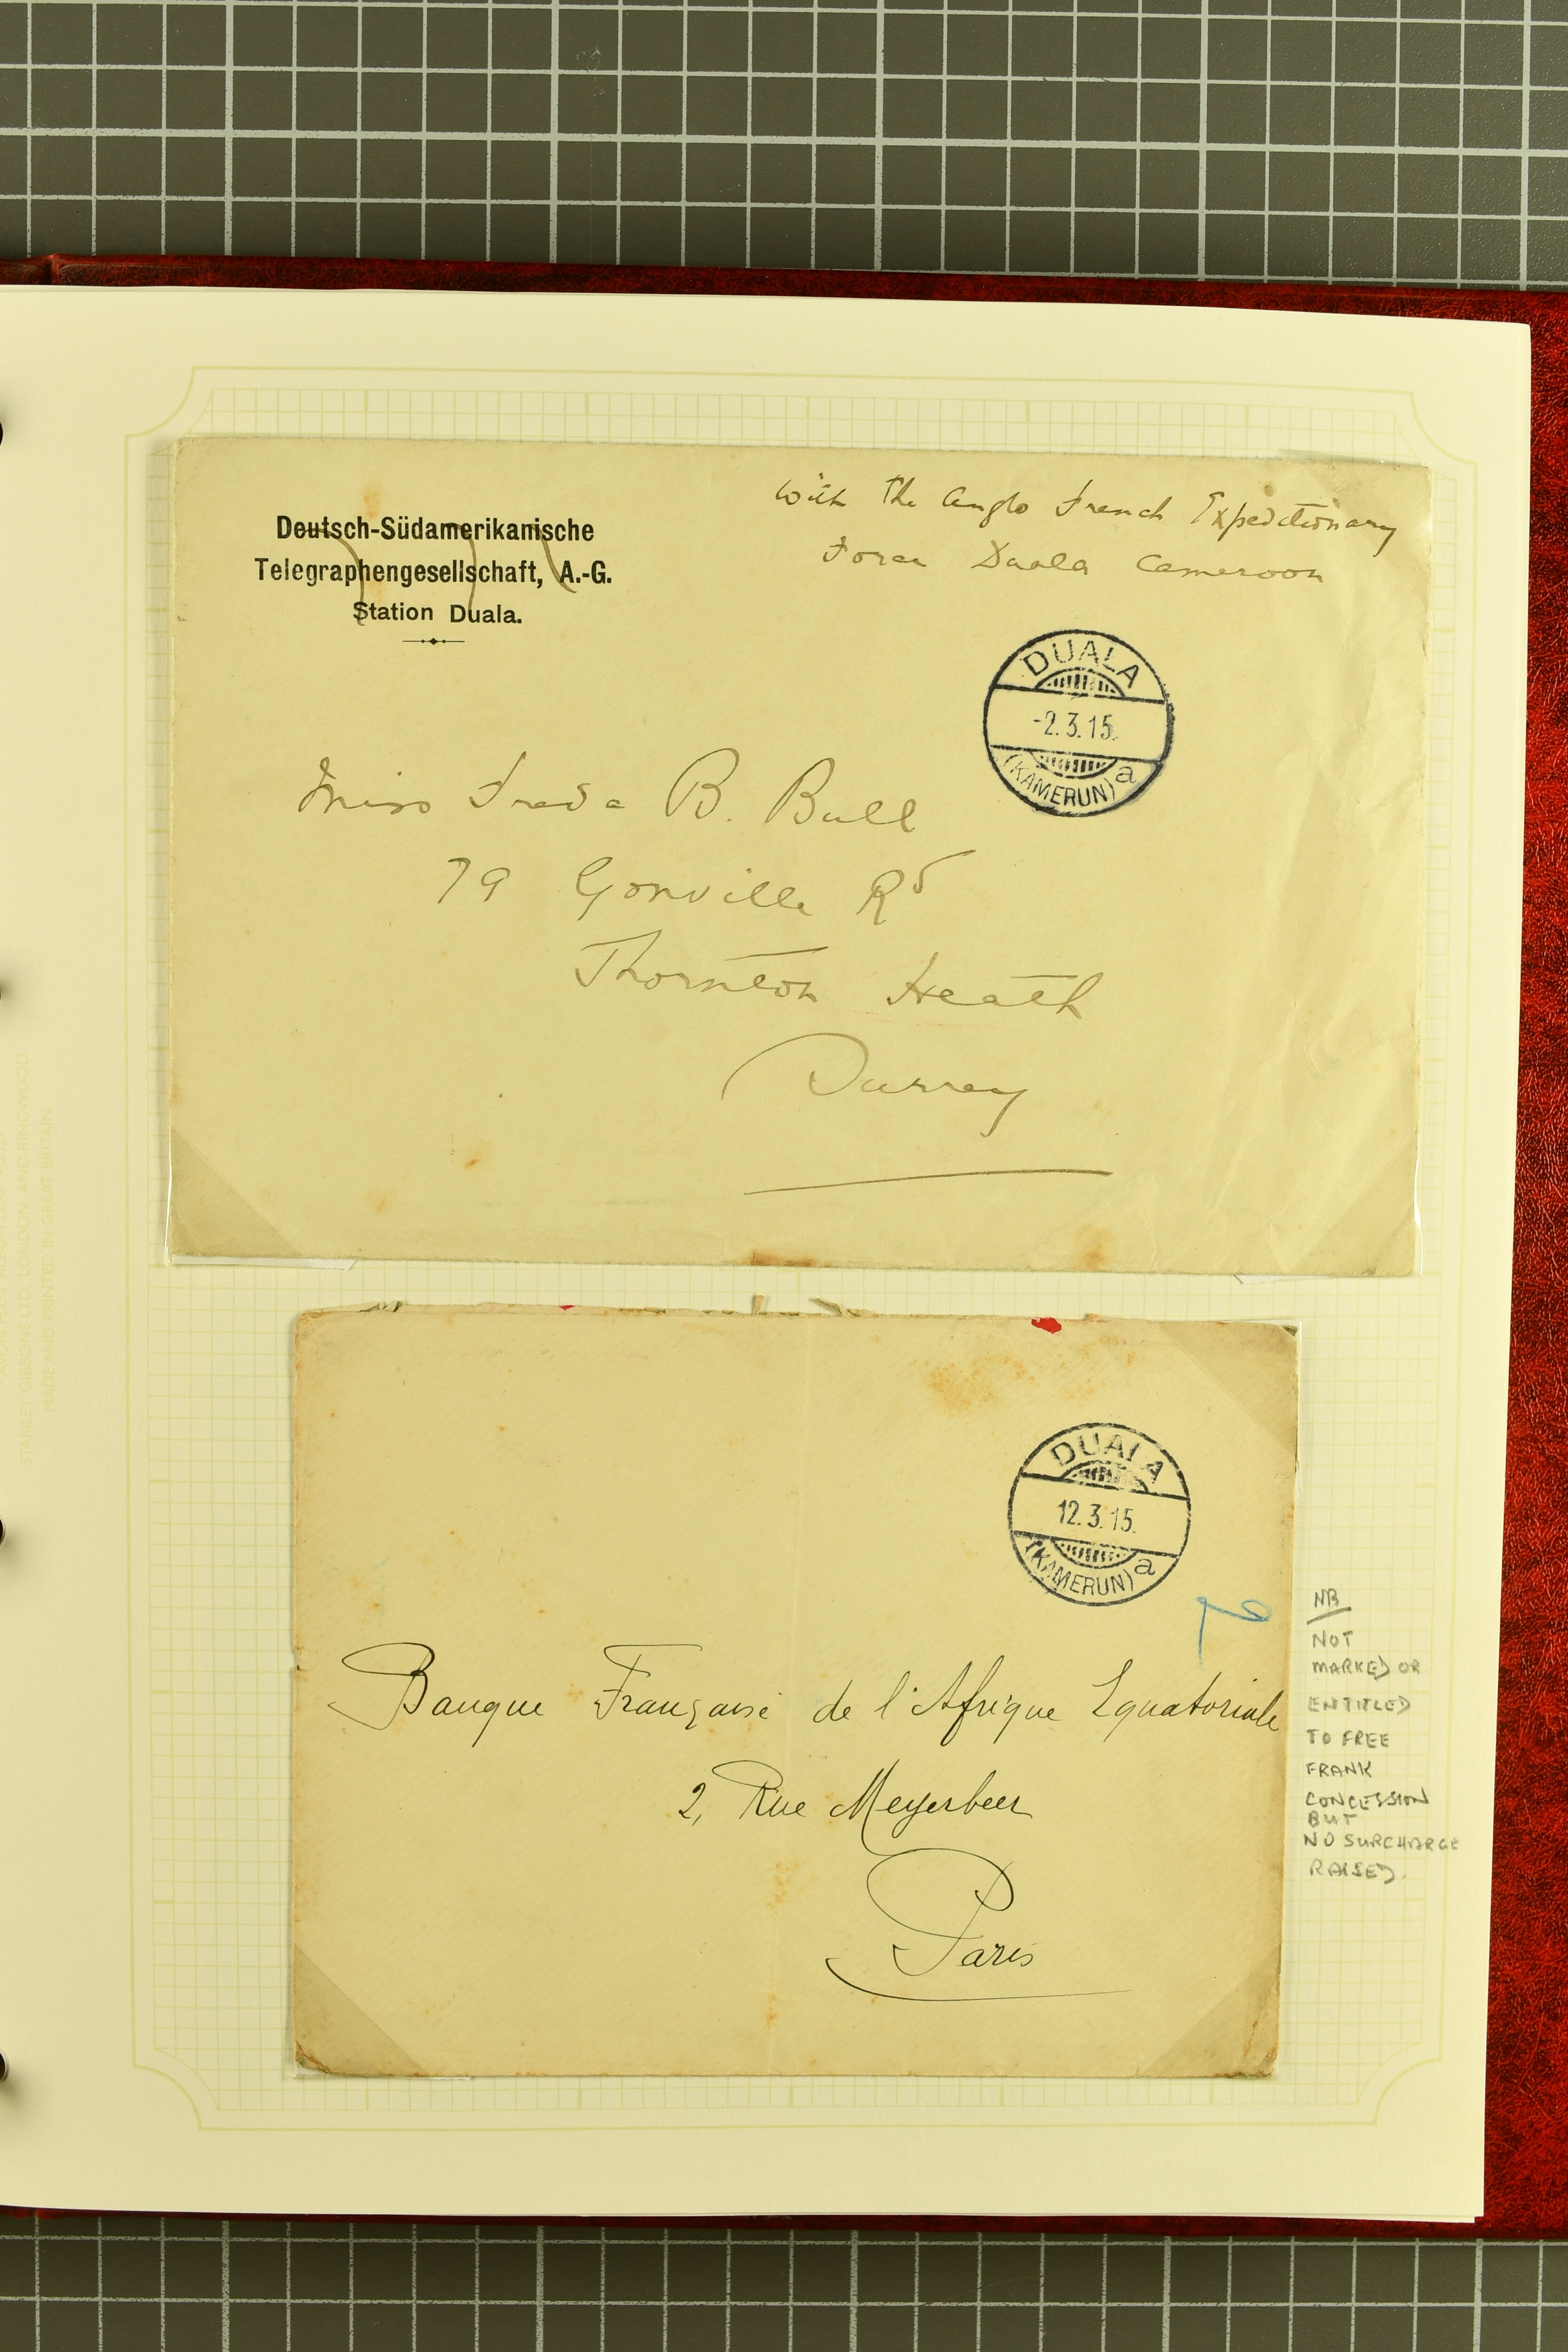 Deutsch-Südamerikanische
Telegraphengesellschaft, A.-G.
Station Duala.
With the Anglo French Expeditionary
Force Duala Cameroon
DUALA
-2.3.15.
(KAMERUN) a
Miss Freda B. Bull
79 Gonville Rd
Thornton Heath
Surrey
DUALA
12.3.15.
(KAMERUN) a
Banque Française de l'Afrique Equatoriale
2, Rue Meyerbeer
Paris
NB
NOT
MARKED OR
ENTITLED
TO FREE
FRANK
CONCESSION
BUT
NO SURCHARGE
RAISED.
STANLEY GIBBONS LTD. LONDON AND RINGWOOD.
MADE AND PRINTED IN GREAT BRITAIN.